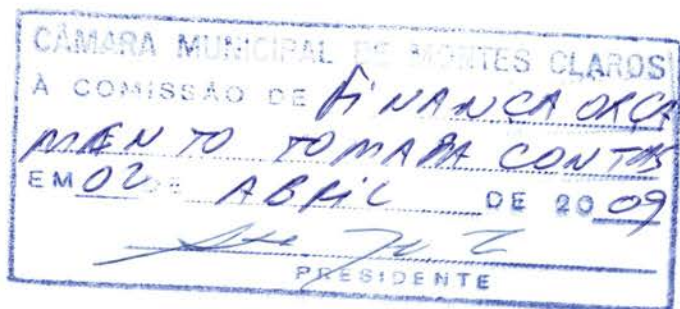 CÂMARA MUNICIPAL DE MONTES CLAROS
À COMISSÃO DE FINANCA ORÇA
MENTO TOMADA CONTAS
EM 02 DE ABRIL DE 2009
PRESIDENTE